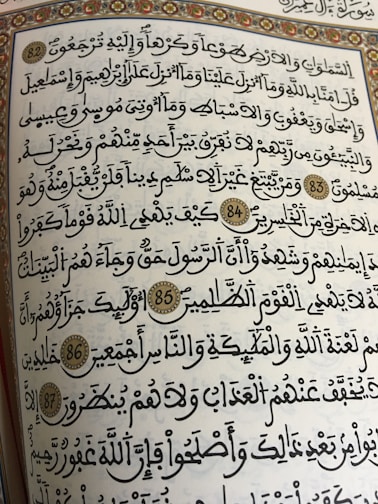 سورة ءال عمران
السموات والارض طوعا وكرها وإليه ترجعون 82
قل امنا بالله وما أنزل علينا وما أنزل على إبراهيم وإسماعيل
وإسحاق ويعقوب والاسباط وما أوتي موسى وعيسى
والنبيئون من ربهم لا نفرق بين أحد منهم ونحن له
مسلمون 83 ومن يبتغ غير الاسلام دينا فلن يقبل منه وهو
الاخرة من الخاسرين 84 كيف يهدي الله قوما كفروا
إيمانهم وشهدوا أن الرسول حق وجاءهم البينات
لا يهدي القوم الظالمين 85 أولئك جزاؤهم أن
لعنة الله والملائكة والناس أجمعين 86 خالدين
لا يخفف عنهم العذاب ولا هم ينظرون 87 إلا
من بعد ذالك وأصلحوا فإن الله غفور رحيم